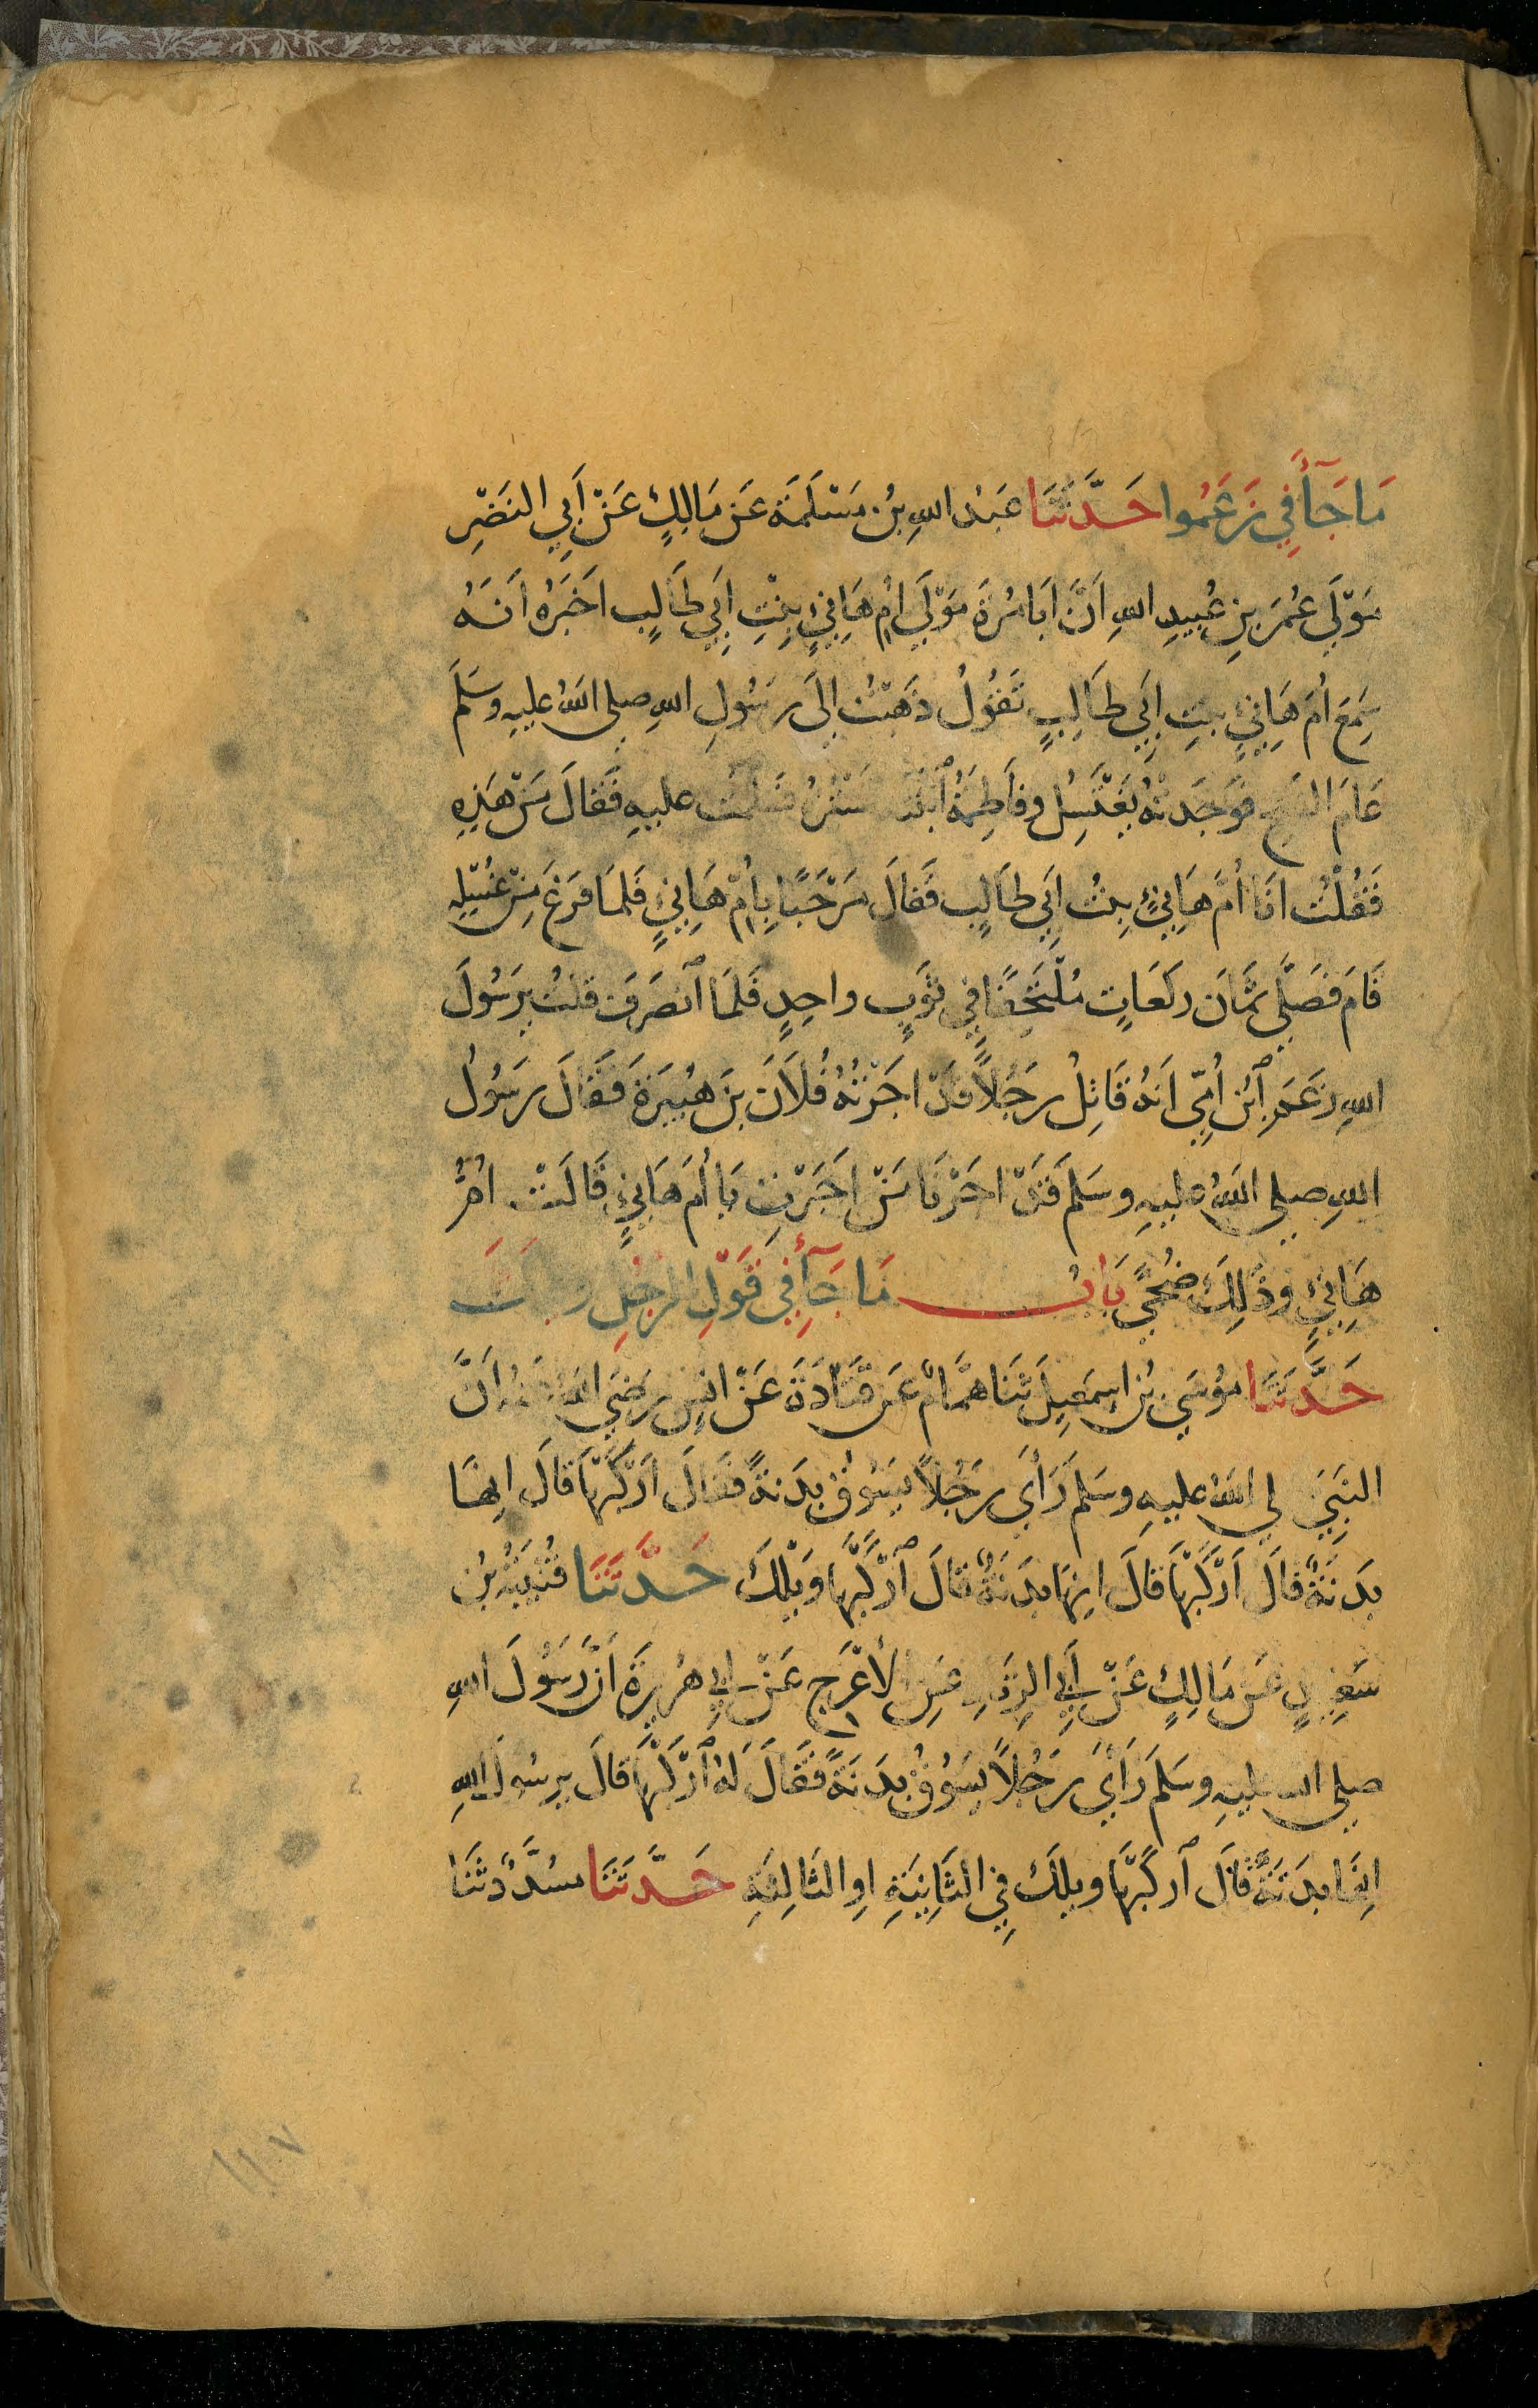 مَا جَآءَ فِي زَعَمُوا حَدَّثَنَا عَبْدُ اللهِ بْنُ مَسْلَمَةَ عَنْ مَالِكٍ عَنْ أَبِي النَضْرِ
مَوْلَى عُمَرَ بنِ عُبَيدِ اللهِ اَنَّ اَبَا مُرَّةَ مَوْلَى اُمِّ هَانِئٍ بِنْتِ اَبِي طَالِبٍ اَخبَرَهُ اَنَهُ
سَمِعَ اُمَ هَانِئٍ بنتِ اَبِي طَالِبٍ تَقُولُ ذَهَبْتُ اِلَى رَسُولِ اللهِ صلى اللهُ عليهِ وسَلمَ
عَامَ الفتحِ فوَجَدتهُ يَغْتَسِلُ وفَاطِمَةُ ٱبْنَتهُ تَسْتُرُهُ فسَلمْتُ عليهِ فَقَالَ مَنْ هَذِهِ
فَقُلْتُ اَنَا اُمُّ هَانِئٍ بِنْتُ اَبِي طَالِبٍ فَقَالَ مَرْحَبًا بِاُمِّ هَانِئٍ فَلمَا فَرَغَ مِنْ غُسْلِهِ
قَامَ فَصَلَّى ثَمَانَ رَكَعَاتٍ مُلْتَحِفًا فِي ثَوبٍ واحِدٍ فَلمَا ٱنصَرَفَ قلتُ يرَسُولَ
اللهِ زَعَمَ ٱبْنُ اُمِّي اَنهُ قَاتِلٌ رَجُلاً قَدْ اَجَرْتُهُ فُلاَنَ بنَ هُبَيرَةَ فَقَالَ رَسُولُ
اللهِ صلى اللهُ عليهِ وسَلمَ قَدْ اَجَرْنَا مَنْ اَجَرْتِ يَا اُمَ هَانِئٍ قَالَتْ اُمُّ
هَانِئٍ وذَلِكَ ضُحًى بَابُ مَا جَآءَ فِي قَوْلِ الرجُلِ ويلَكَ
حَدَّثَنَا مُوسَى بْنُ اِسمَعِيلَ ثَنَا هَمَّامٌ عَن قَتَادَةَ عَنْ اَنسٍ رَضِيَ اللهُ عَنهُ اَنَّ
النَبِيَ صلى اللهُ عليهِ وسَلمَ رَأَى رَجُلاً يَسُوقُ بَدَنةً فقَالَ ٱرْكَبْهَا قَالَ اِنهَا
بدَنَةٌ قالَ ٱرْكَبْهَا قَالَ اِنهَا بدَنَةٌ قالَ ٱرْكَبْهَا وَيْلَكَ حَدَّثَنَا قُتَيْبَةُ بْنُ
سَعِيدٍ عَن مَالِكٍ عَنْ اَبِي الزِنَادِ عَنِ الاَعْرَجِ عَنْ اَبِي هُرَيرَةَ اَنَّ رَسُولَ اللهِ
صلى الله عليهِ وسَلمَ رَأَى رَجُلاً يَسُوقُ بدَنَةً فَقَالَ لَهُ ٱرْكَبْهَا قالَ يرسُولَ اللهِ
اِنهَا بدَنَةٌ قَالَ ٱركَبْهَا ويلَكَ فِي الثَانِيَةِ اوِ الثَالِثَةِ حَدَّثَنَا مسَدَّدٌ ثَنَا